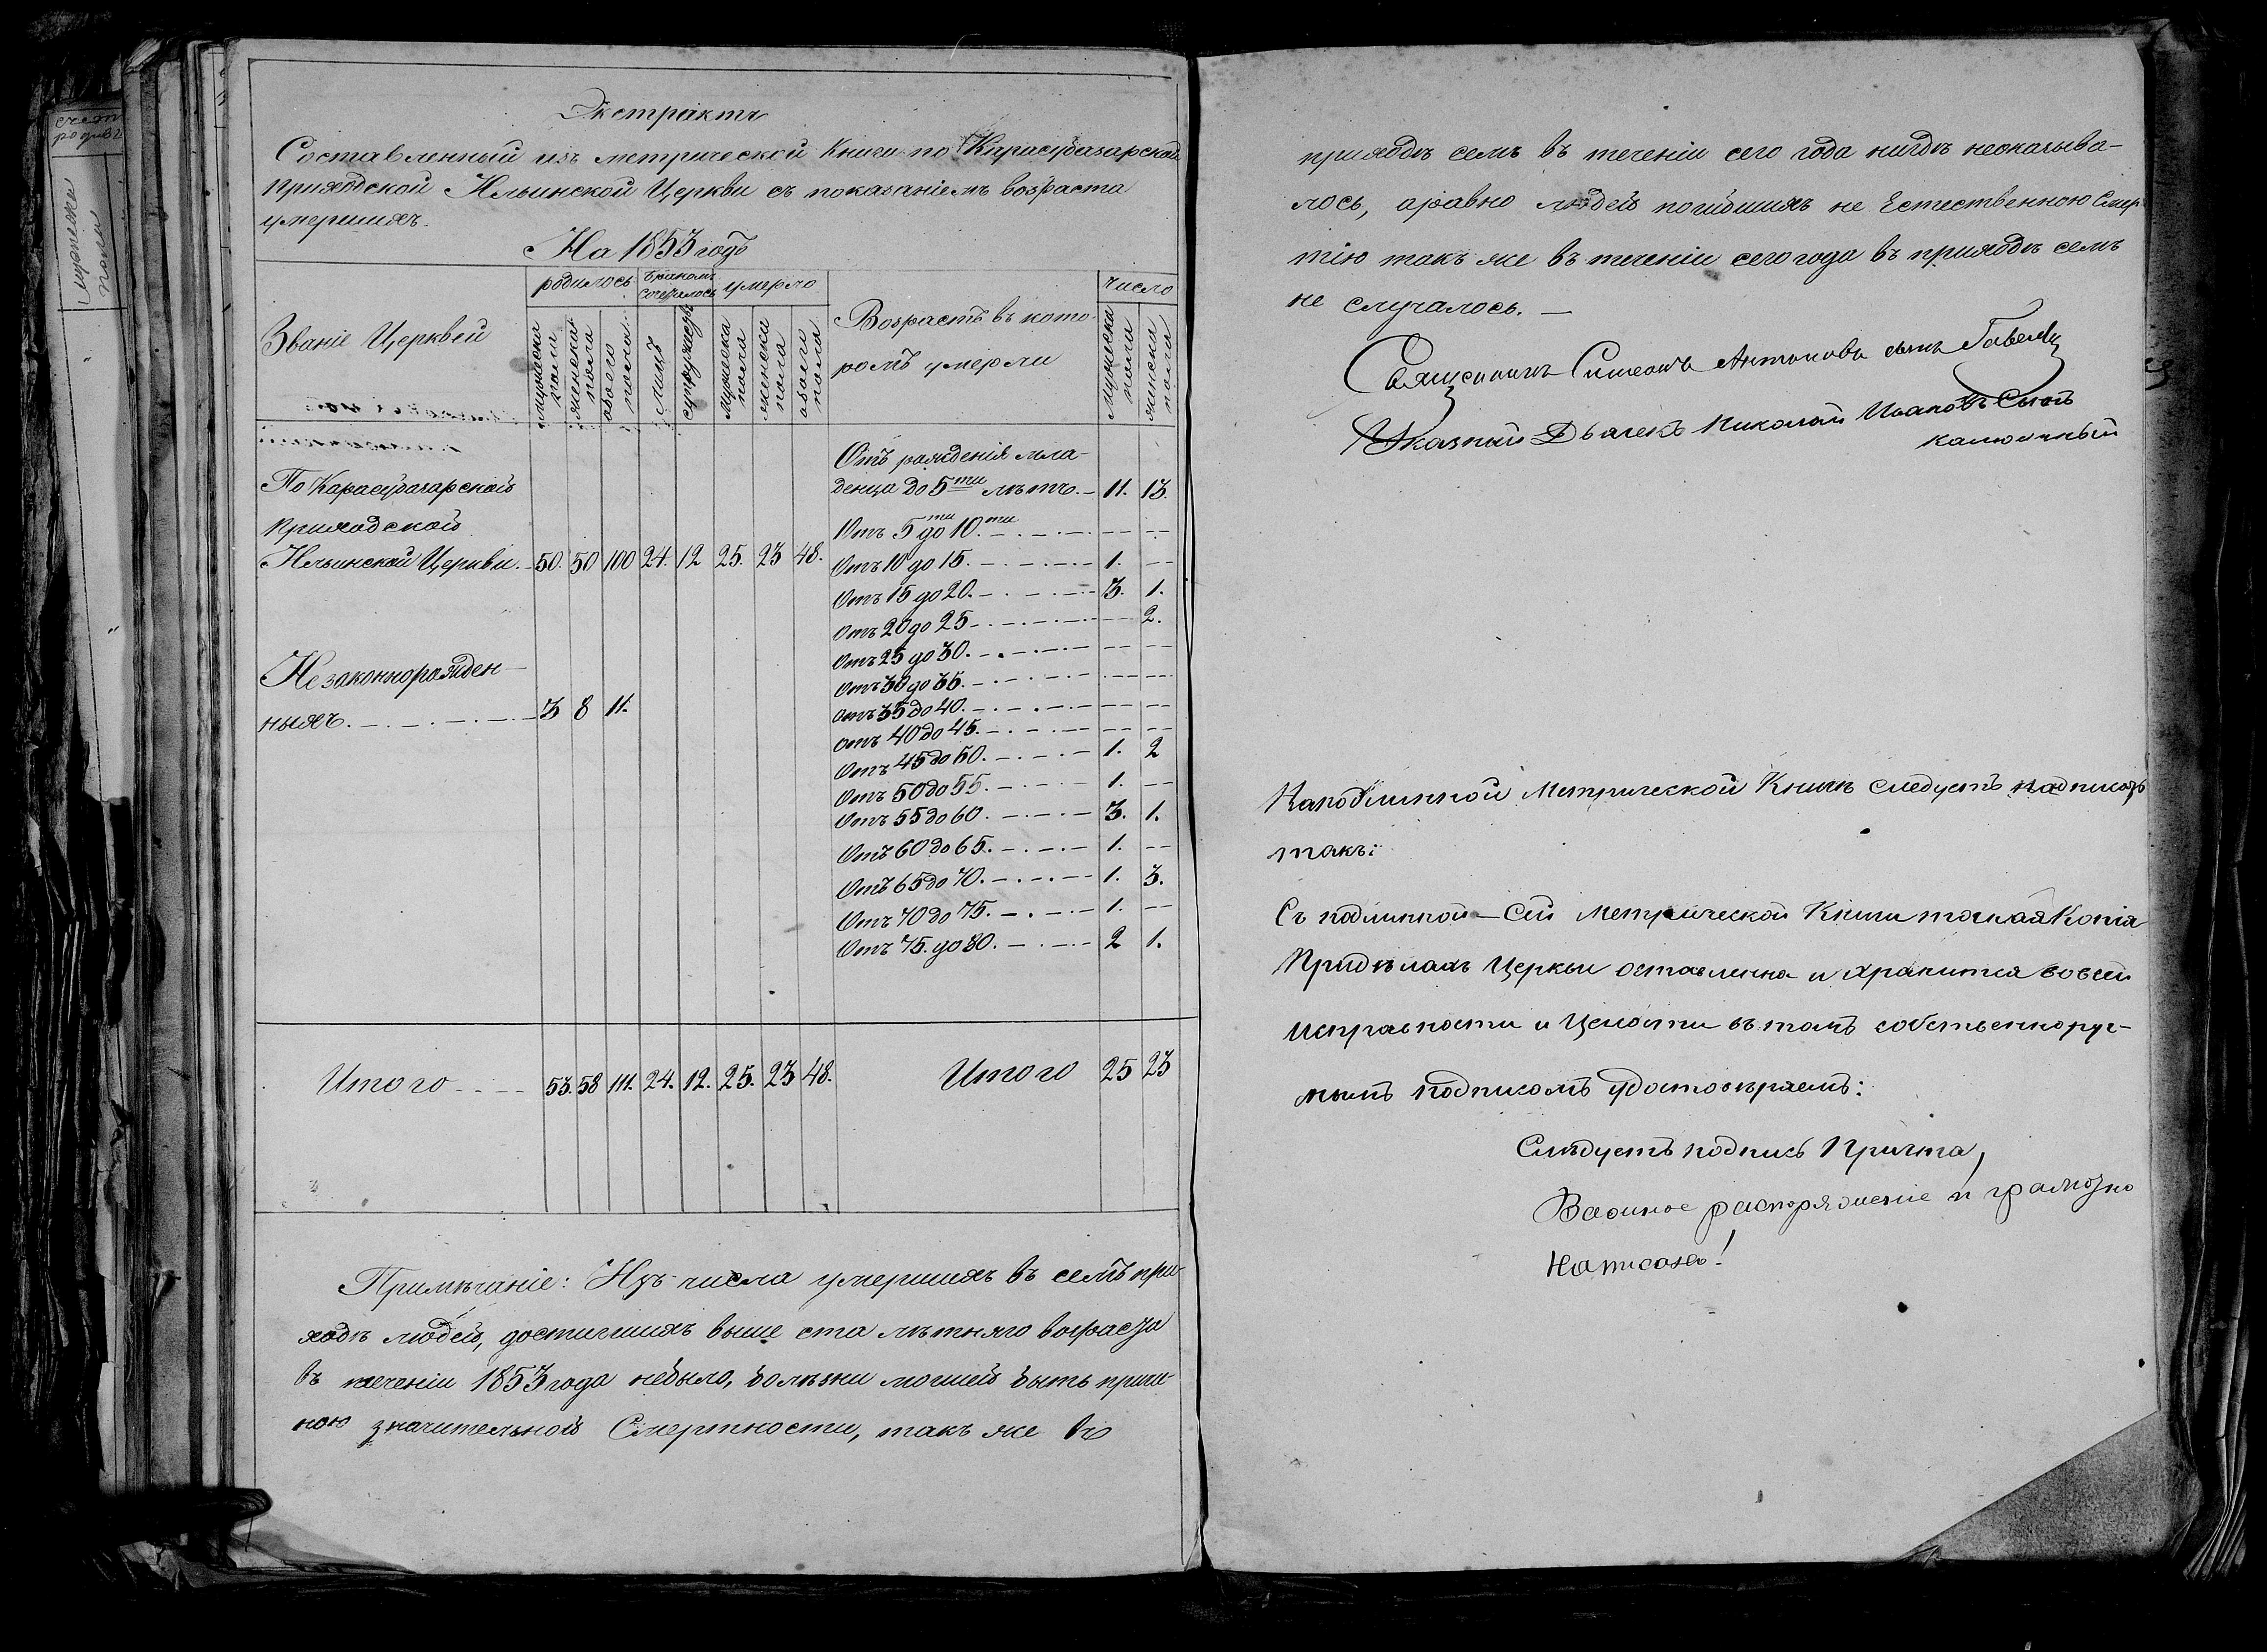 счетъ
родивъ
мужеска
пола
Экстрактъ
Составленный изъ метрической Книги по Карасубазарской
приходской Ильинской Церкви съ показаніемъ возраста
умершихъ.
На 1853 годъ
Званіе Церквей
родилось
бракомъ сочеталось
умерло
Возрастъ въ кото-
ромъ умерли
число
мужеска пола
женска пола
обоего пола
лицъ
супружествъ
мужеска пола
женска пола
обоего пола
мужеска пола
женска пола
По Карасубазарской
приходской
Ильинской Церкви. 50. 50 100 24. 12 25. 23 48.
Незаконнорожден-
ныхъ. 3 8 11.
Отъ рожденія мла-
денца до 5ти лѣтъ. 11. 13.
Отъ 5ти до 10ти — —
Отъ 10 до 15. 1. —
Отъ 15 до 20. 3. 1.
Отъ 20 до 25 — 2.
Отъ 25 до 30. — —
Отъ 30 до 35. — —
Отъ 35 до 40. — —
Отъ 40 до 45. — —
Отъ 45 до 50. 1. 2
Отъ 50 до 55. 1. —
Отъ 55 до 60. 3. 1.
Отъ 60 до 65. 1. —
Отъ 65 до 70. 1. 3.
Отъ 70 до 75. 1. —
Отъ 75. до 80. 2 1.
Итого 53. 58 111. 24. 12. 25. 23 48. Итого 25 23
Примѣчаніе: Изъ числа умершихъ въ семъ при-
ходѣ людей, достигшихъ выше ста лѣтняго возраста
въ теченіи 1853 года небыло, болѣзни могшей быть причи-
ною значительной Смертности, такъ же въ
приходѣ семъ въ теченіи сего года нигдѣ неоказыва-
лось, аравно людей погибшихъ не Естественною Смер
тію такъ же въ теченіи сего года въ приходѣ семъ
не случалось. —
Священникъ Симеонъ Антоновъ сынъ
Указный Дьячекъ Николай Ивановъ Сынъ
калюжный
Наподлинной Метрической Книгѣ следуетъ надписать
такъ:
Съ подлинной — Сей Метрической Книги точная Копія
Придѣлахъ Церкви оставлена и хранится вовсей
исправности и Целости въ томъ собственноруч-
нымъ подписомъ удостовѣряемъ:
Слѣдуетъ подпись Причта,
распоряженіе и грамотно
Написано!